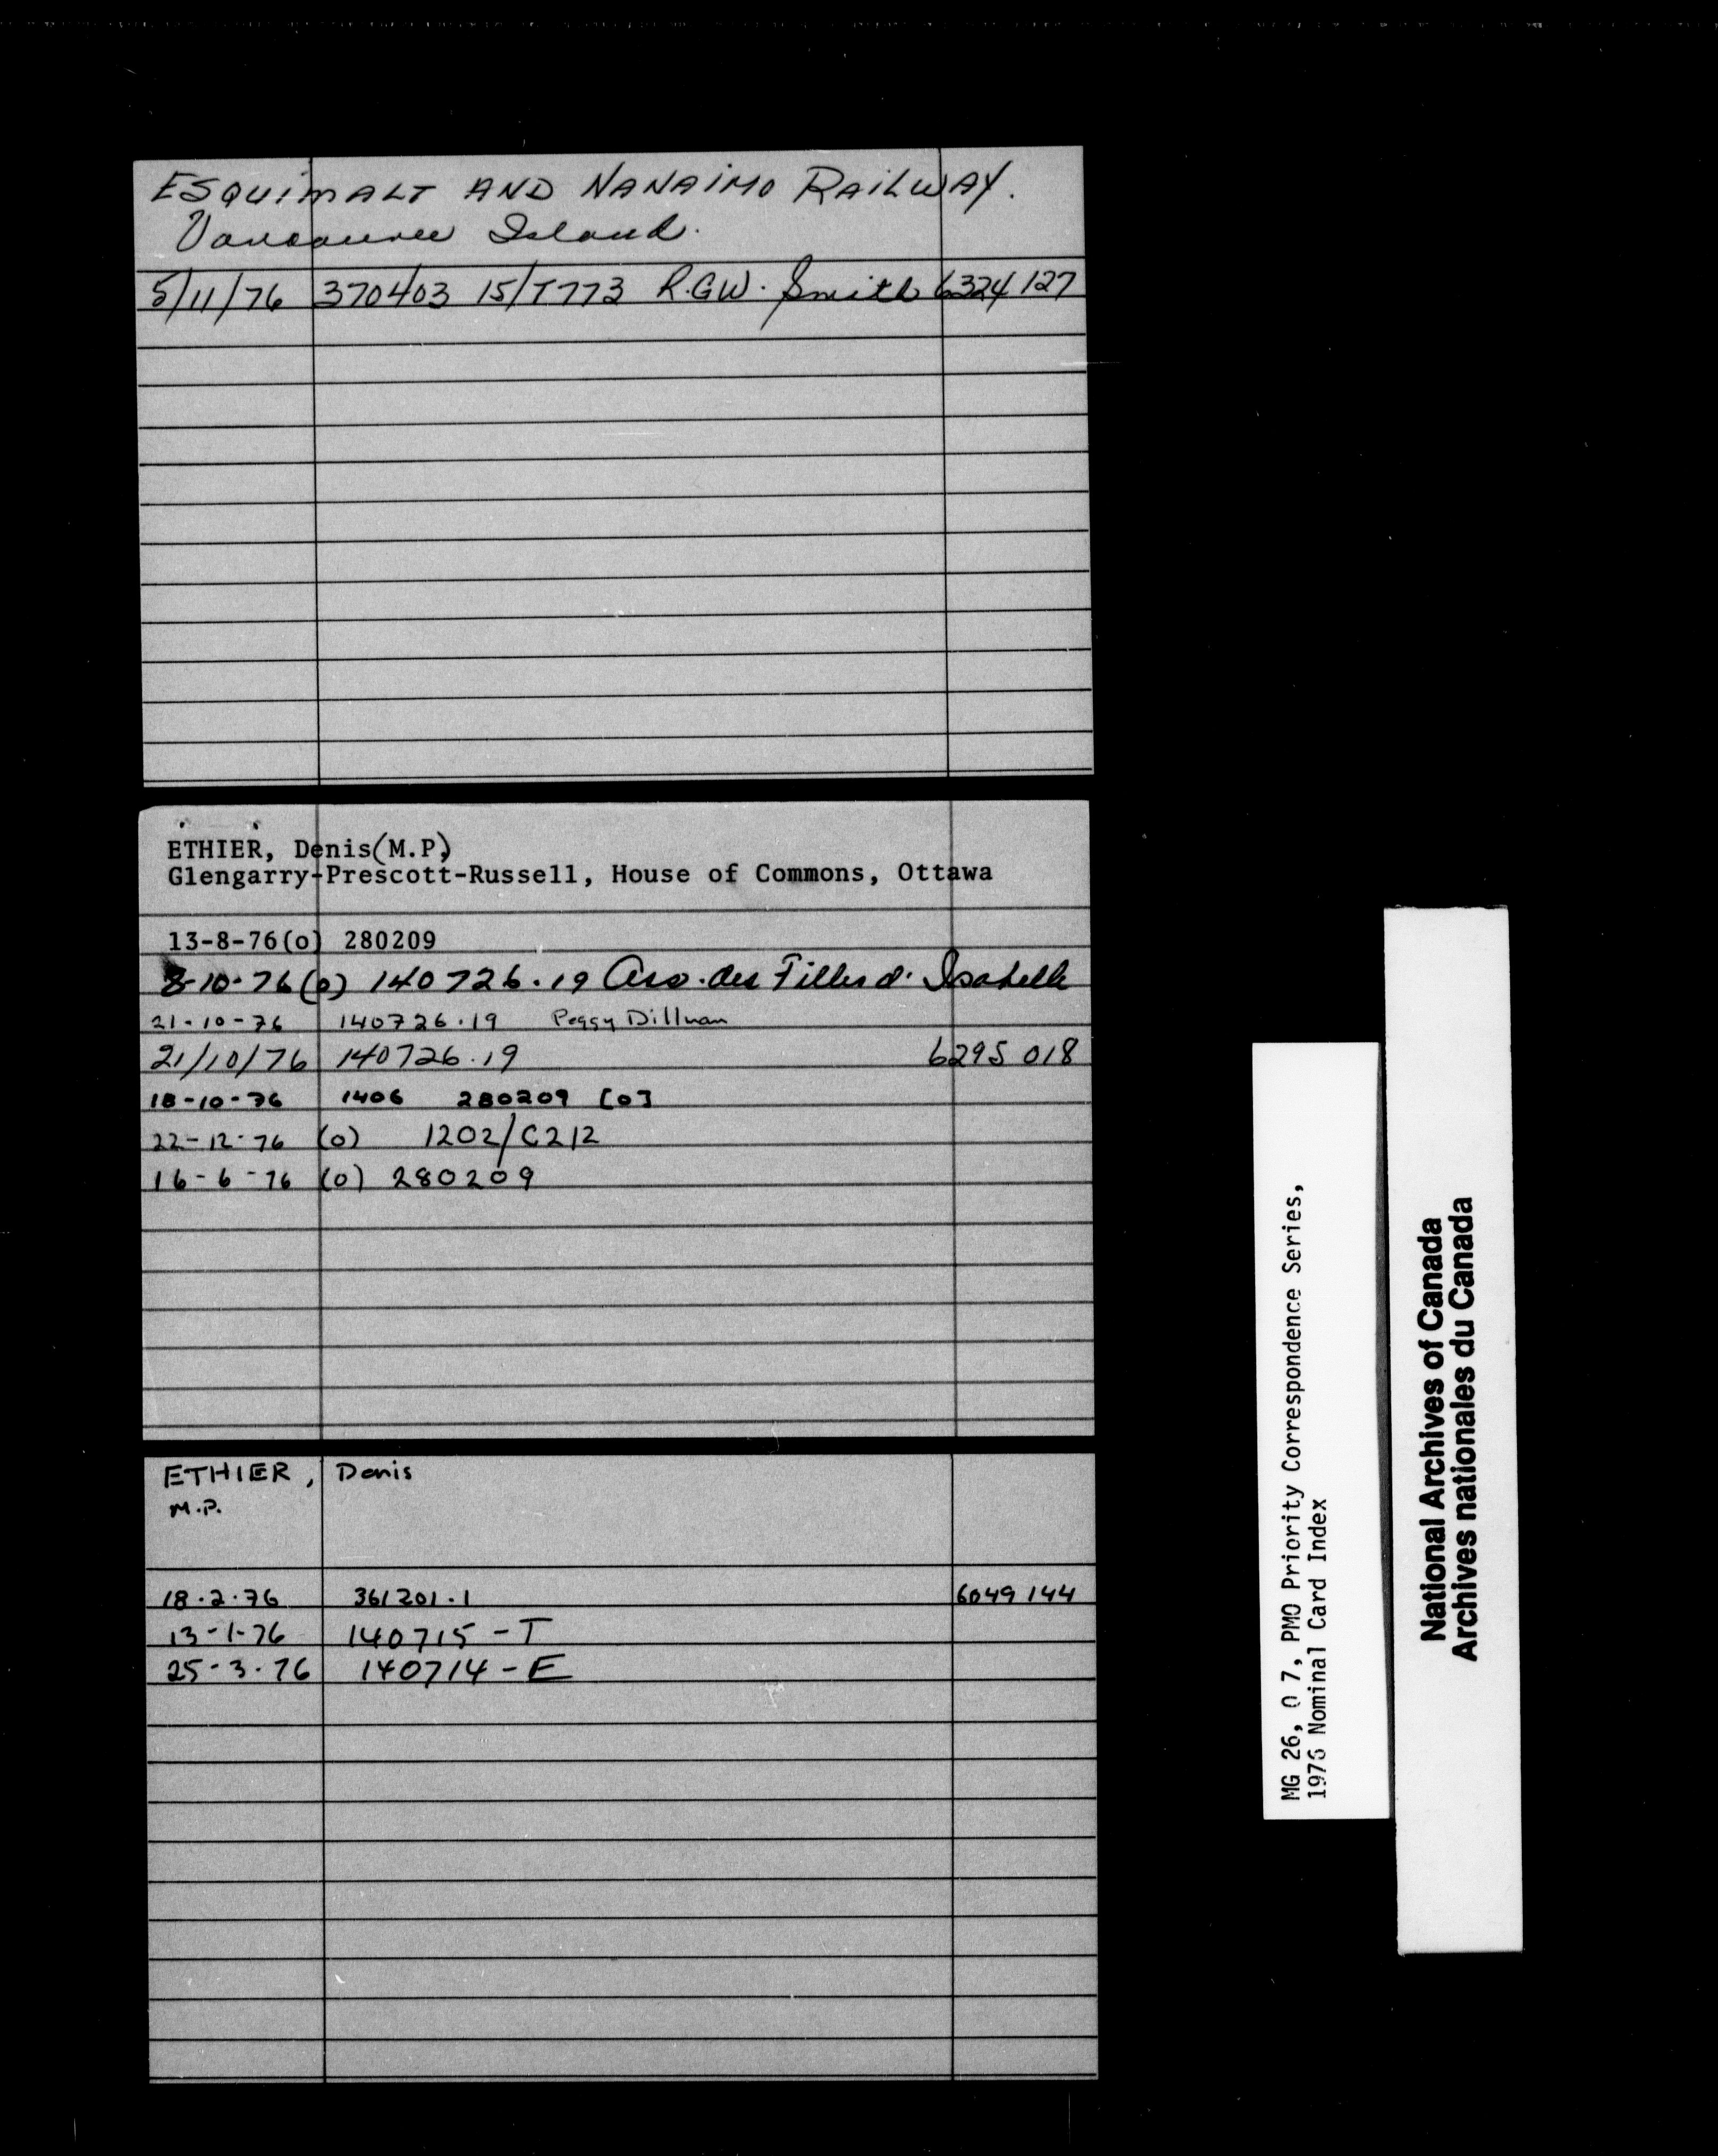 ESQUIMALT AND NANAIMO RAILWAY.
Vancouver Island.
5/11/76 370403 15/T773 R.G.W. Smith 6324 127
ETHIER, Denis(M.P)
Glengarry-Prescott-Russell, House of Commons, Ottawa
13-8-76(o) 280209
8-10-76(o) 140726.19 Ass. des Filles d' Isabelle
21-10-76 140726.19 Peggy Dillman
21/10/76 140726.19 6295 018
18-10-76 1406 280209 [o]
22-12-76 (o) 1202/C212
16-6-76 (o) 280209
ETHIER, Denis
M.P.
18.2.76 361201.1 6049 144
13-1-76 140715-T
25-3-76 140714-E
MG 26, O 7, PMO Priority Correspondence Series,
1976 Nominal Card Index
National Archives of Canada
Archives nationales du Canada